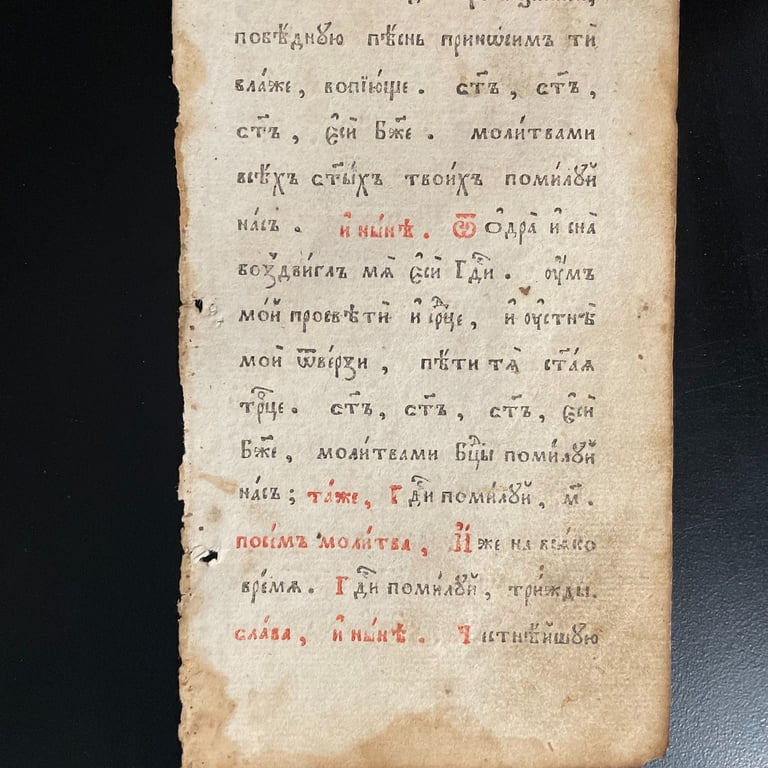 побѣ́днꙋю пѣ́снь прино́симъ тѝ
бла́же, вопїю́ще. ст҃ъ, ст҃ъ,
ст҃ъ, є҆сѝ бж҃е. моли́твами
всѣ́хъ ст҃ы́хъ твои́хъ поми́лꙋй
на́съ. и҆ ны́нѣ. Ѿ ѻ҆дра̀ и҆ сна̀
воздви́глъ мѧ̀ є҆сѝ гдⷭ҇и. ᲂу҆́мъ
мо́й просвѣтѝ и҆ срⷣце, и҆ ᲂу҆стнѣ̀
моѝ ѿве́рзи, пѣ́ти тѧ̀ ст҃а́ѧ
трⷪ҇це. ст҃ъ, ст҃ъ, ст҃ъ, є҆сѝ
бж҃е, моли́твами бцⷣы поми́лꙋй
на́съ; та́же, Гдⷭ҇и поми́лꙋй, м҃.
посе́мъ моли́тва, И҆́же на всѧ́ко
вре́мѧ. Гдⷭ҇и поми́лꙋй, три́жды.
сла́ва, и҆ ны́нѣ. Честнѣ́йшꙋю